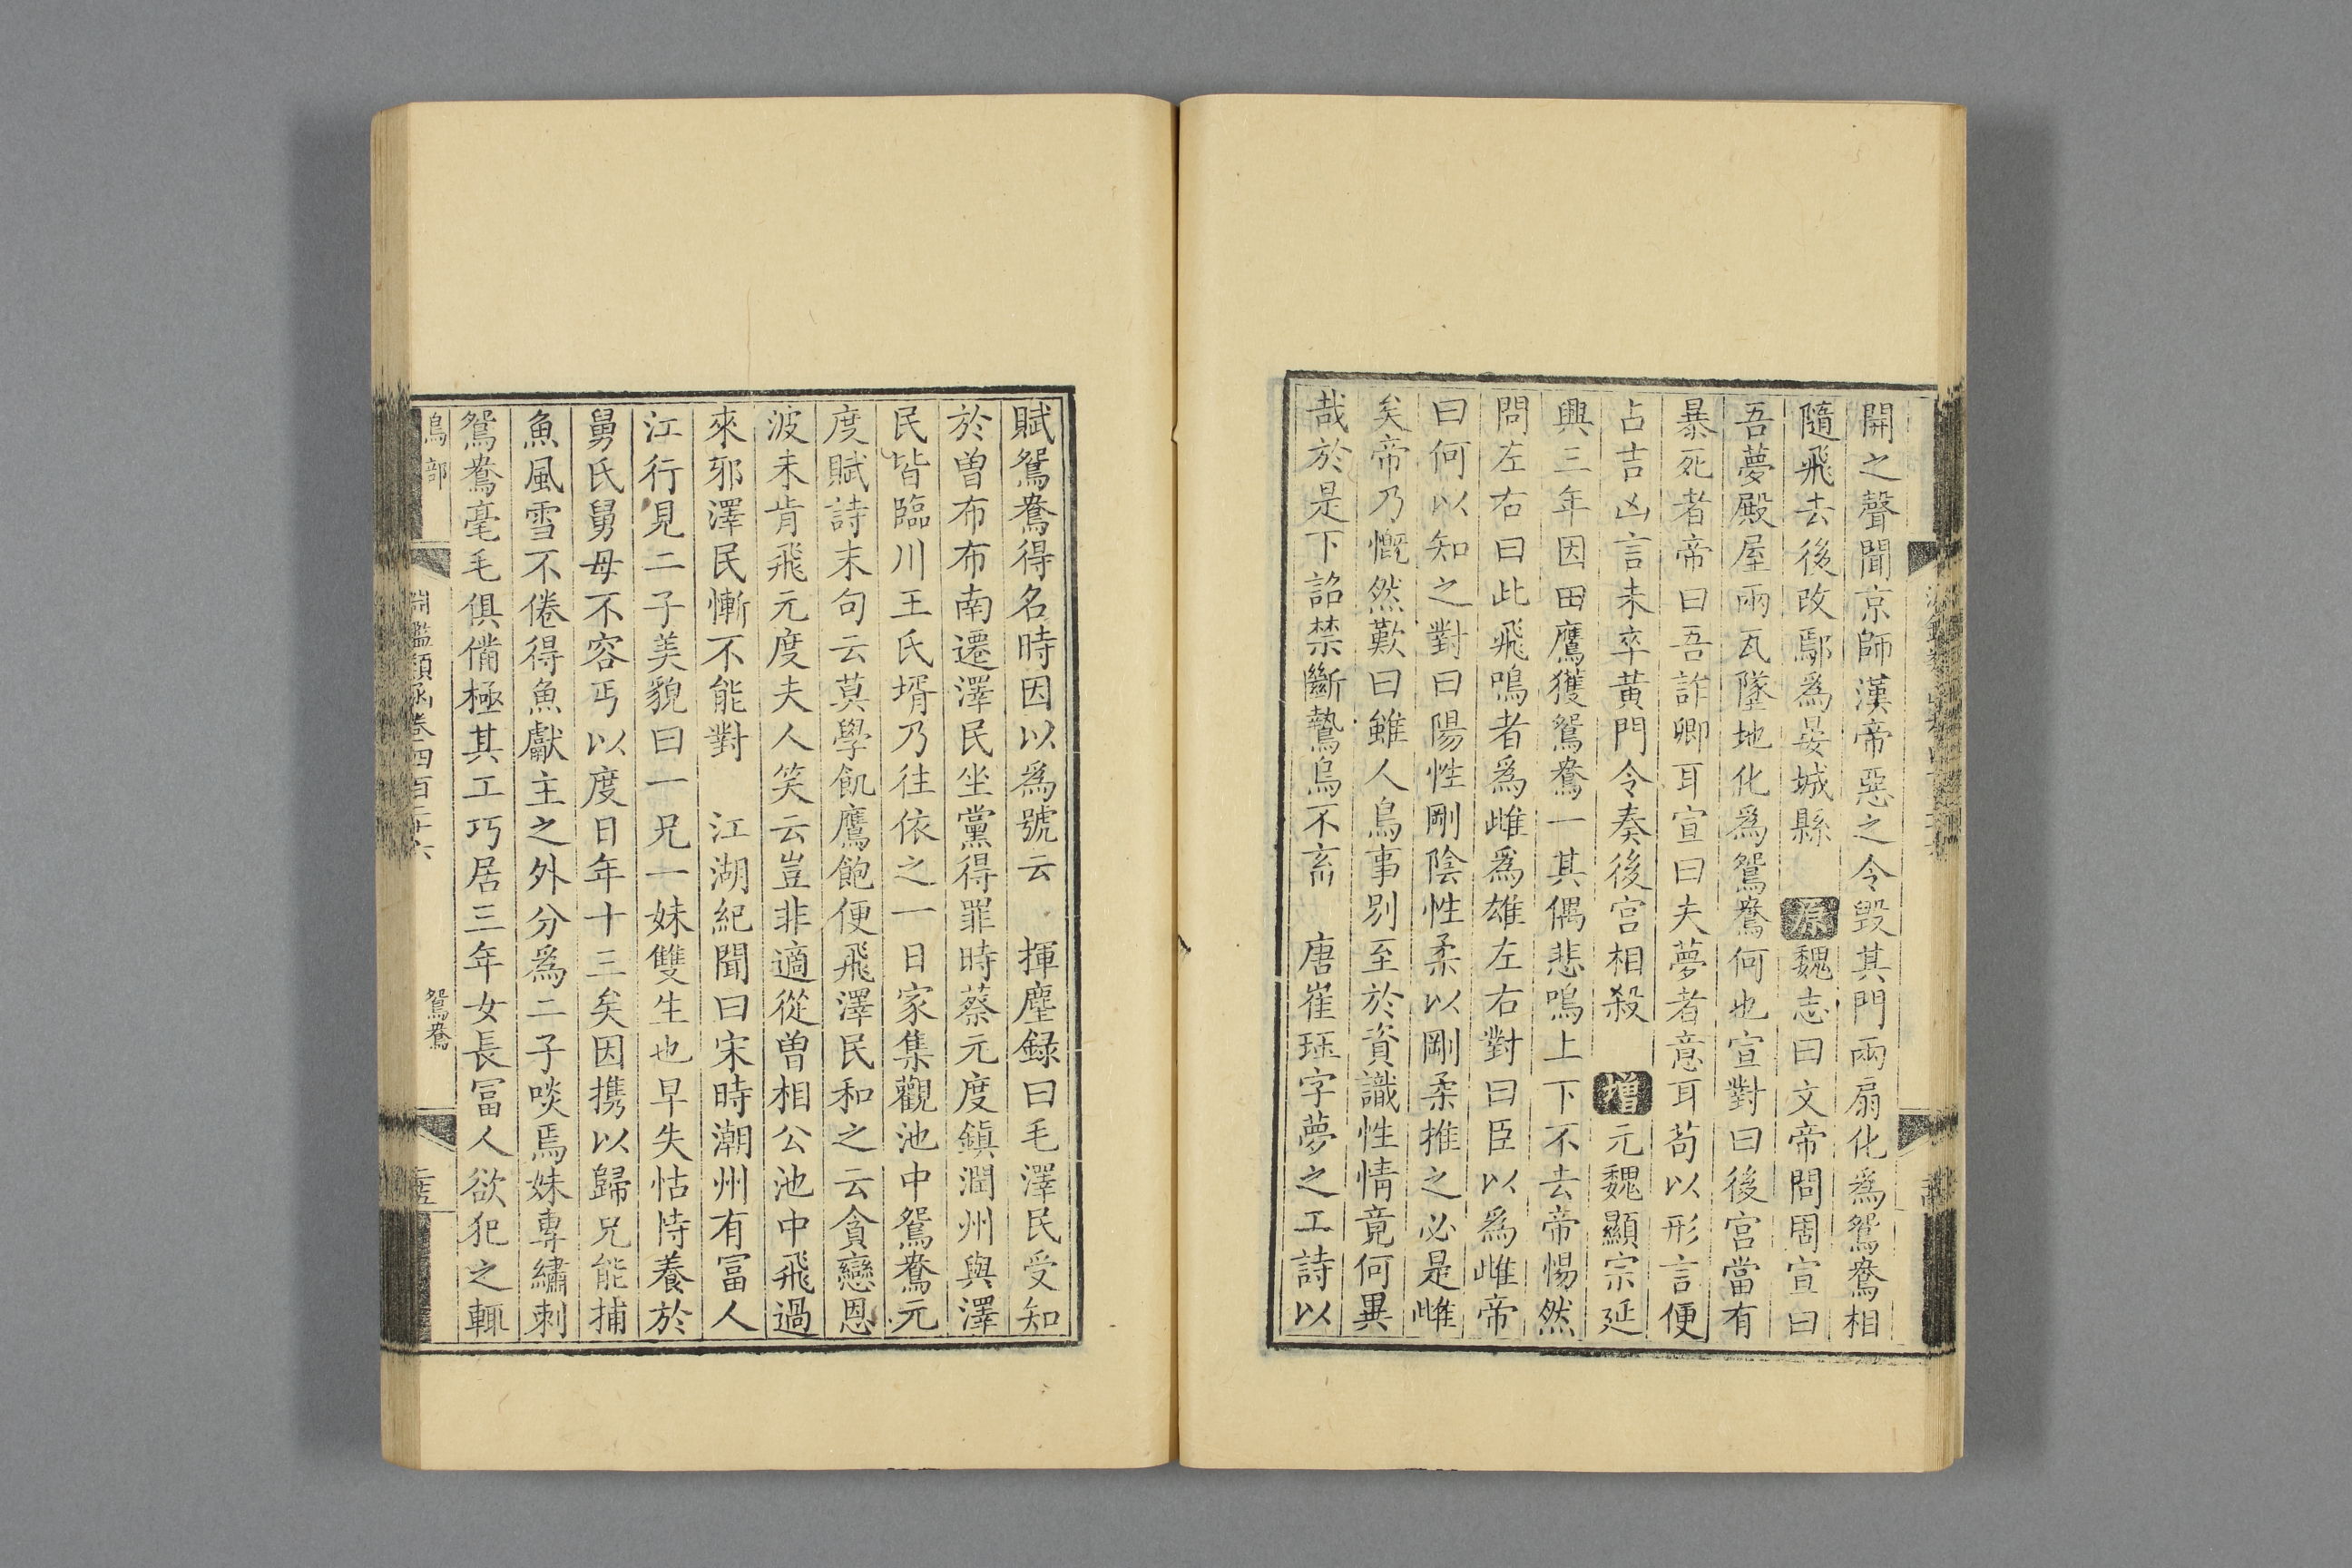 開之聲聞京師漢帝惡之令毁其門兩扇化爲鴛鴦相
隨飛去後改鄢爲晏城縣　原魏志曰文帝問周宣曰
吾夢殿屋兩瓦墜地化爲鴛鴦何也宣對曰後宮當有
暴死者帝曰吾詐卿耳宣曰夫夢者意耳苟以形言便
占吉凶言未卒黃門令奏後宮相殺　增元魏顯宗延
興三年因田鷹獲鴛鴦一其偶悲鳴上下不去帝惕然
問左右曰此飛鳴者爲雌爲雄左右對曰臣以爲雌帝
曰何以知之對曰陽性剛陰性柔以剛柔推之必是雌
矣帝乃慨然歎曰雖人鳥事別至於資識性情竟何異
哉於是下詔禁斷鷙鳥不畜　唐崔珏字夢之工詩以
賦鴛鴦得名時因以爲號云　揮麈録曰毛澤民受知
於曾布布南遷澤民坐黨得罪時蔡元度鎮潤州與澤
民皆臨川王氏壻乃往依之一日家集觀池中鴛鴦元
度賦詩末句云莫學飢鷹飽便飛澤民和之云貪戀恩
波未肯飛元度夫人笑云豈非適從曾相公池中飛過
來邪澤民慚不能對　江湖紀聞曰宋時潮州有冨人
江行見二子美貌曰一兄一妹雙生也早失怙恃養於
舅氏舅母不容丐以度日年十三矣因携以歸兄能捕
魚風雪不倦得魚獻主之外分爲二子啖焉妹專繡刺
鴛鴦毫毛俱備極其工巧居三年女長冨人欲犯之輒
鳥部　淵鑑類函卷四百二十六　鴛鴦